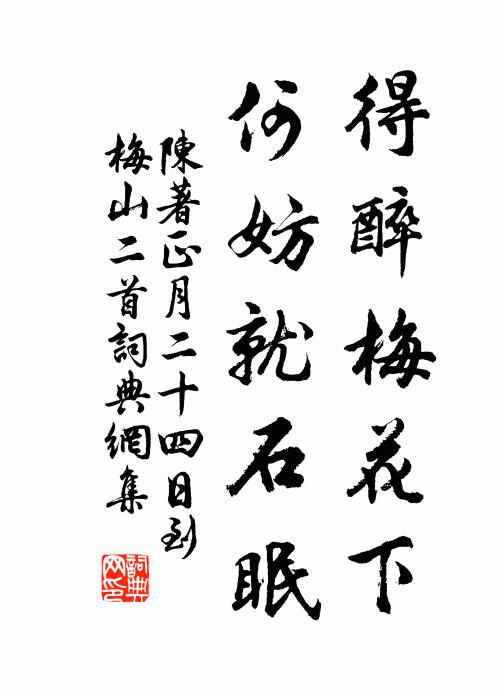 得醉梅花下
何妨就石眠
陳著正月二十四日到
梅山二首詞典網集
詞典網印